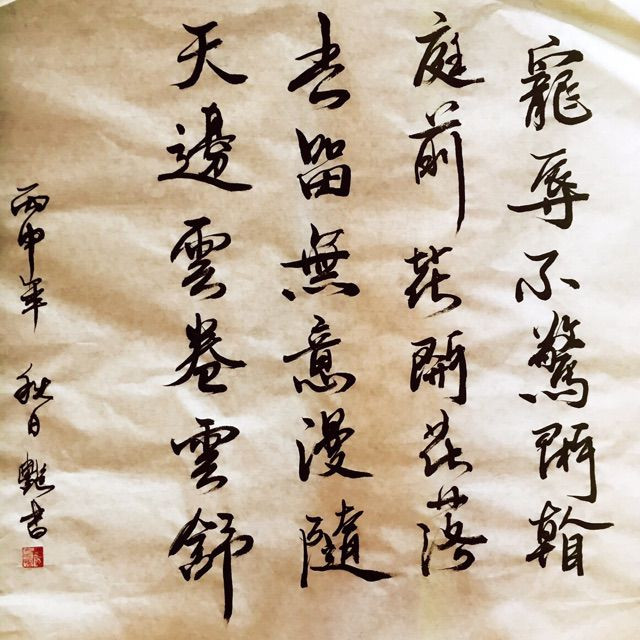 寵辱不驚閒看
庭前花開花落
去留無意漫隨
天邊雲卷雲舒
丙申年 秋日 艷書